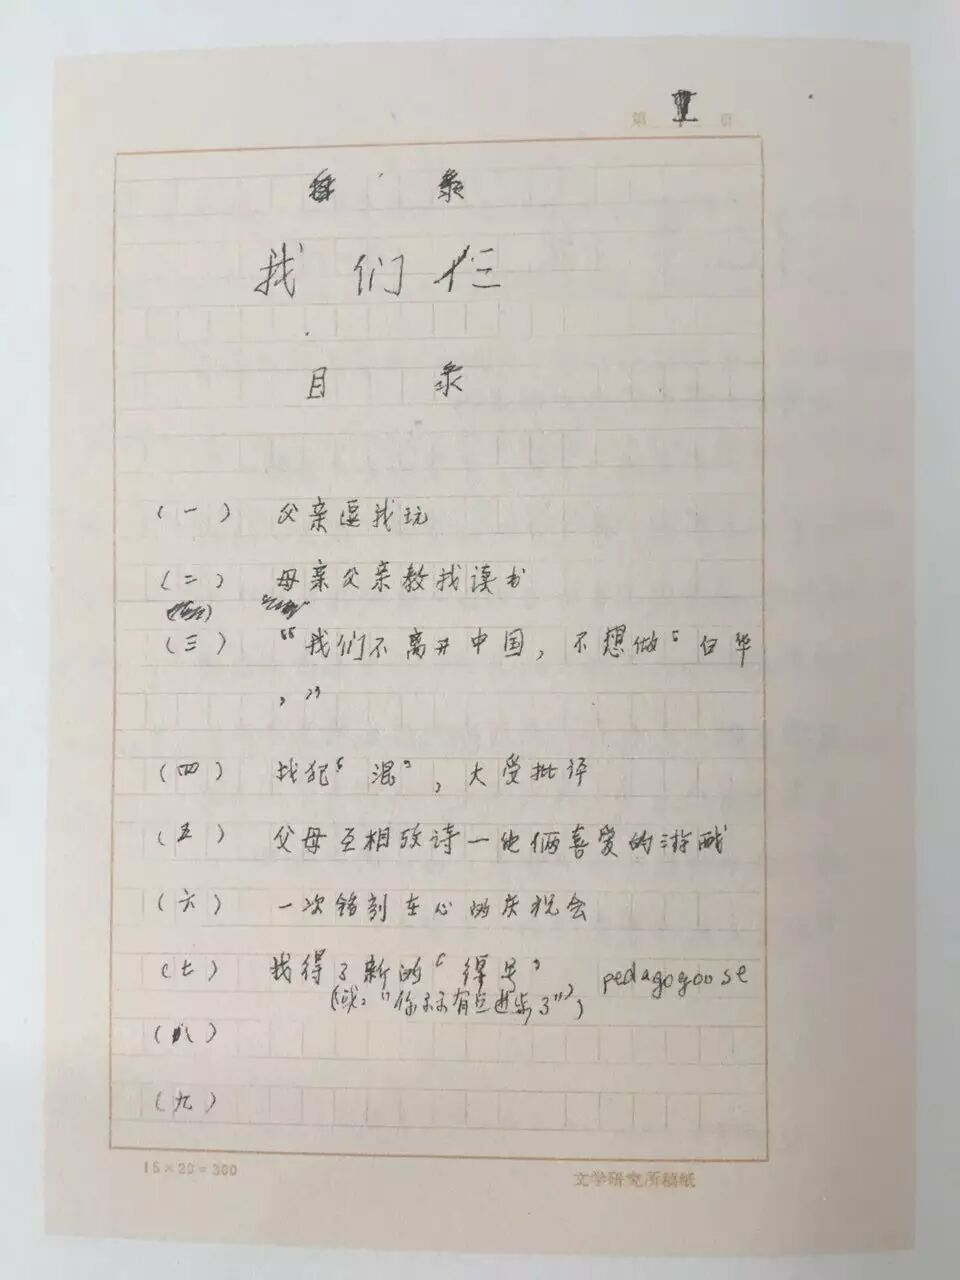 第 页
录
我们仨
目 录
(一) 父亲逗我玩
(二) 母亲父亲教我读书
(三) “我们不离开中国，不想做‘白华
’”
(四) 我犯‘混’，大受批评
(五) 父母互相改诗一他俩喜爱的游戏
(六) 一次铭刻在心的庆祝会
(七) 我得了新的‘得号’ pedagogoose
(或：“你示示有点进步了”)
(八)
(九)
15×20=300 文学研究所稿纸